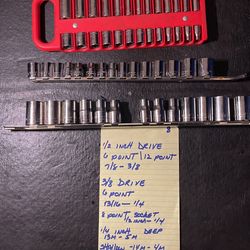 1/2 INCH DRIVE
6 POINT | 12 POINT
7/8 - 3/8
3/8 DRIVE
6 POINT
13/16 - 1/4
8 POINT SOCKET
1/2 INCH - 1/4
1/4 INCH DEEP
13M - 5M
SHALLOW - 14M - 4M